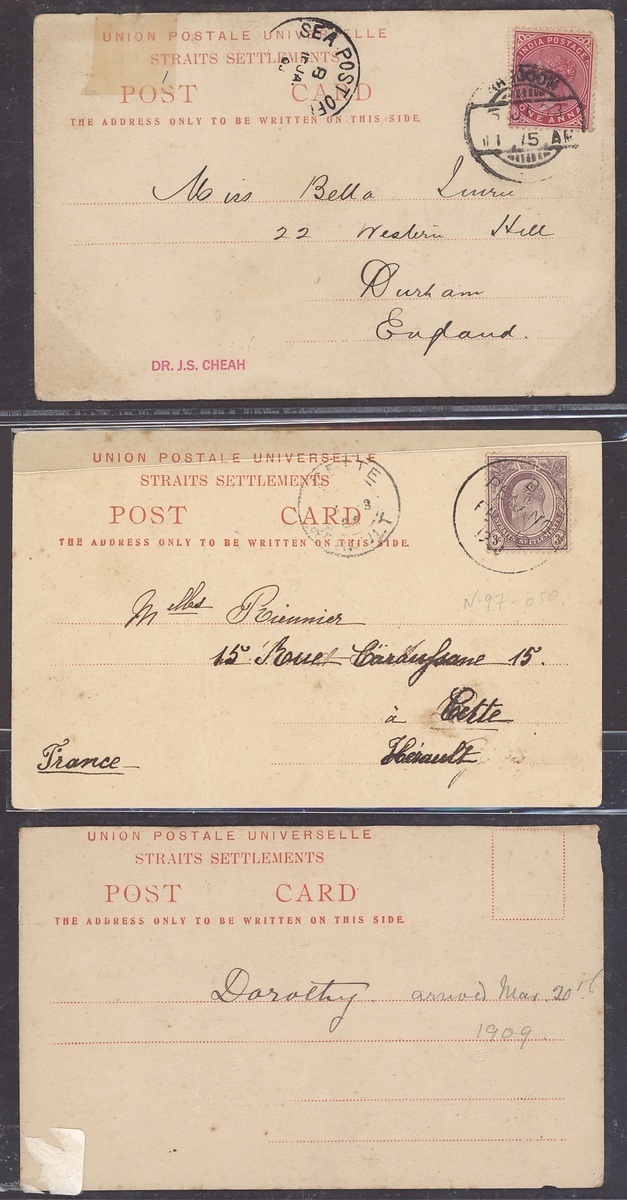 UNION POSTALE UNIVERSELLE
STRAITS SETTLEMENTS
POST CARD
THE ADDRESS ONLY TO BE WRITTEN ON THIS SIDE.
SEA POST OF
B
JA
INDIA POSTAGE
ONE ANNA
15 AM
Miss Bella
22 Western Hill
Durham
England.
DR. J.S. CHEAH
UNION POSTALE UNIVERSELLE
STRAITS SETTLEMENTS
POST CARD
THE ADDRESS ONLY TO BE WRITTEN ON THIS SIDE.
CETTE
HERAULT
B
STRAITS SETTLEMENTS
N-97-050.
Melles Rieunier
15 Rue 15.
à Cette
Hérault
France
UNION POSTALE UNIVERSELLE
STRAITS SETTLEMENTS
POST CARD
THE ADDRESS ONLY TO BE WRITTEN ON THIS SIDE.
Dorothy. arrived Mar. 20th
1909.